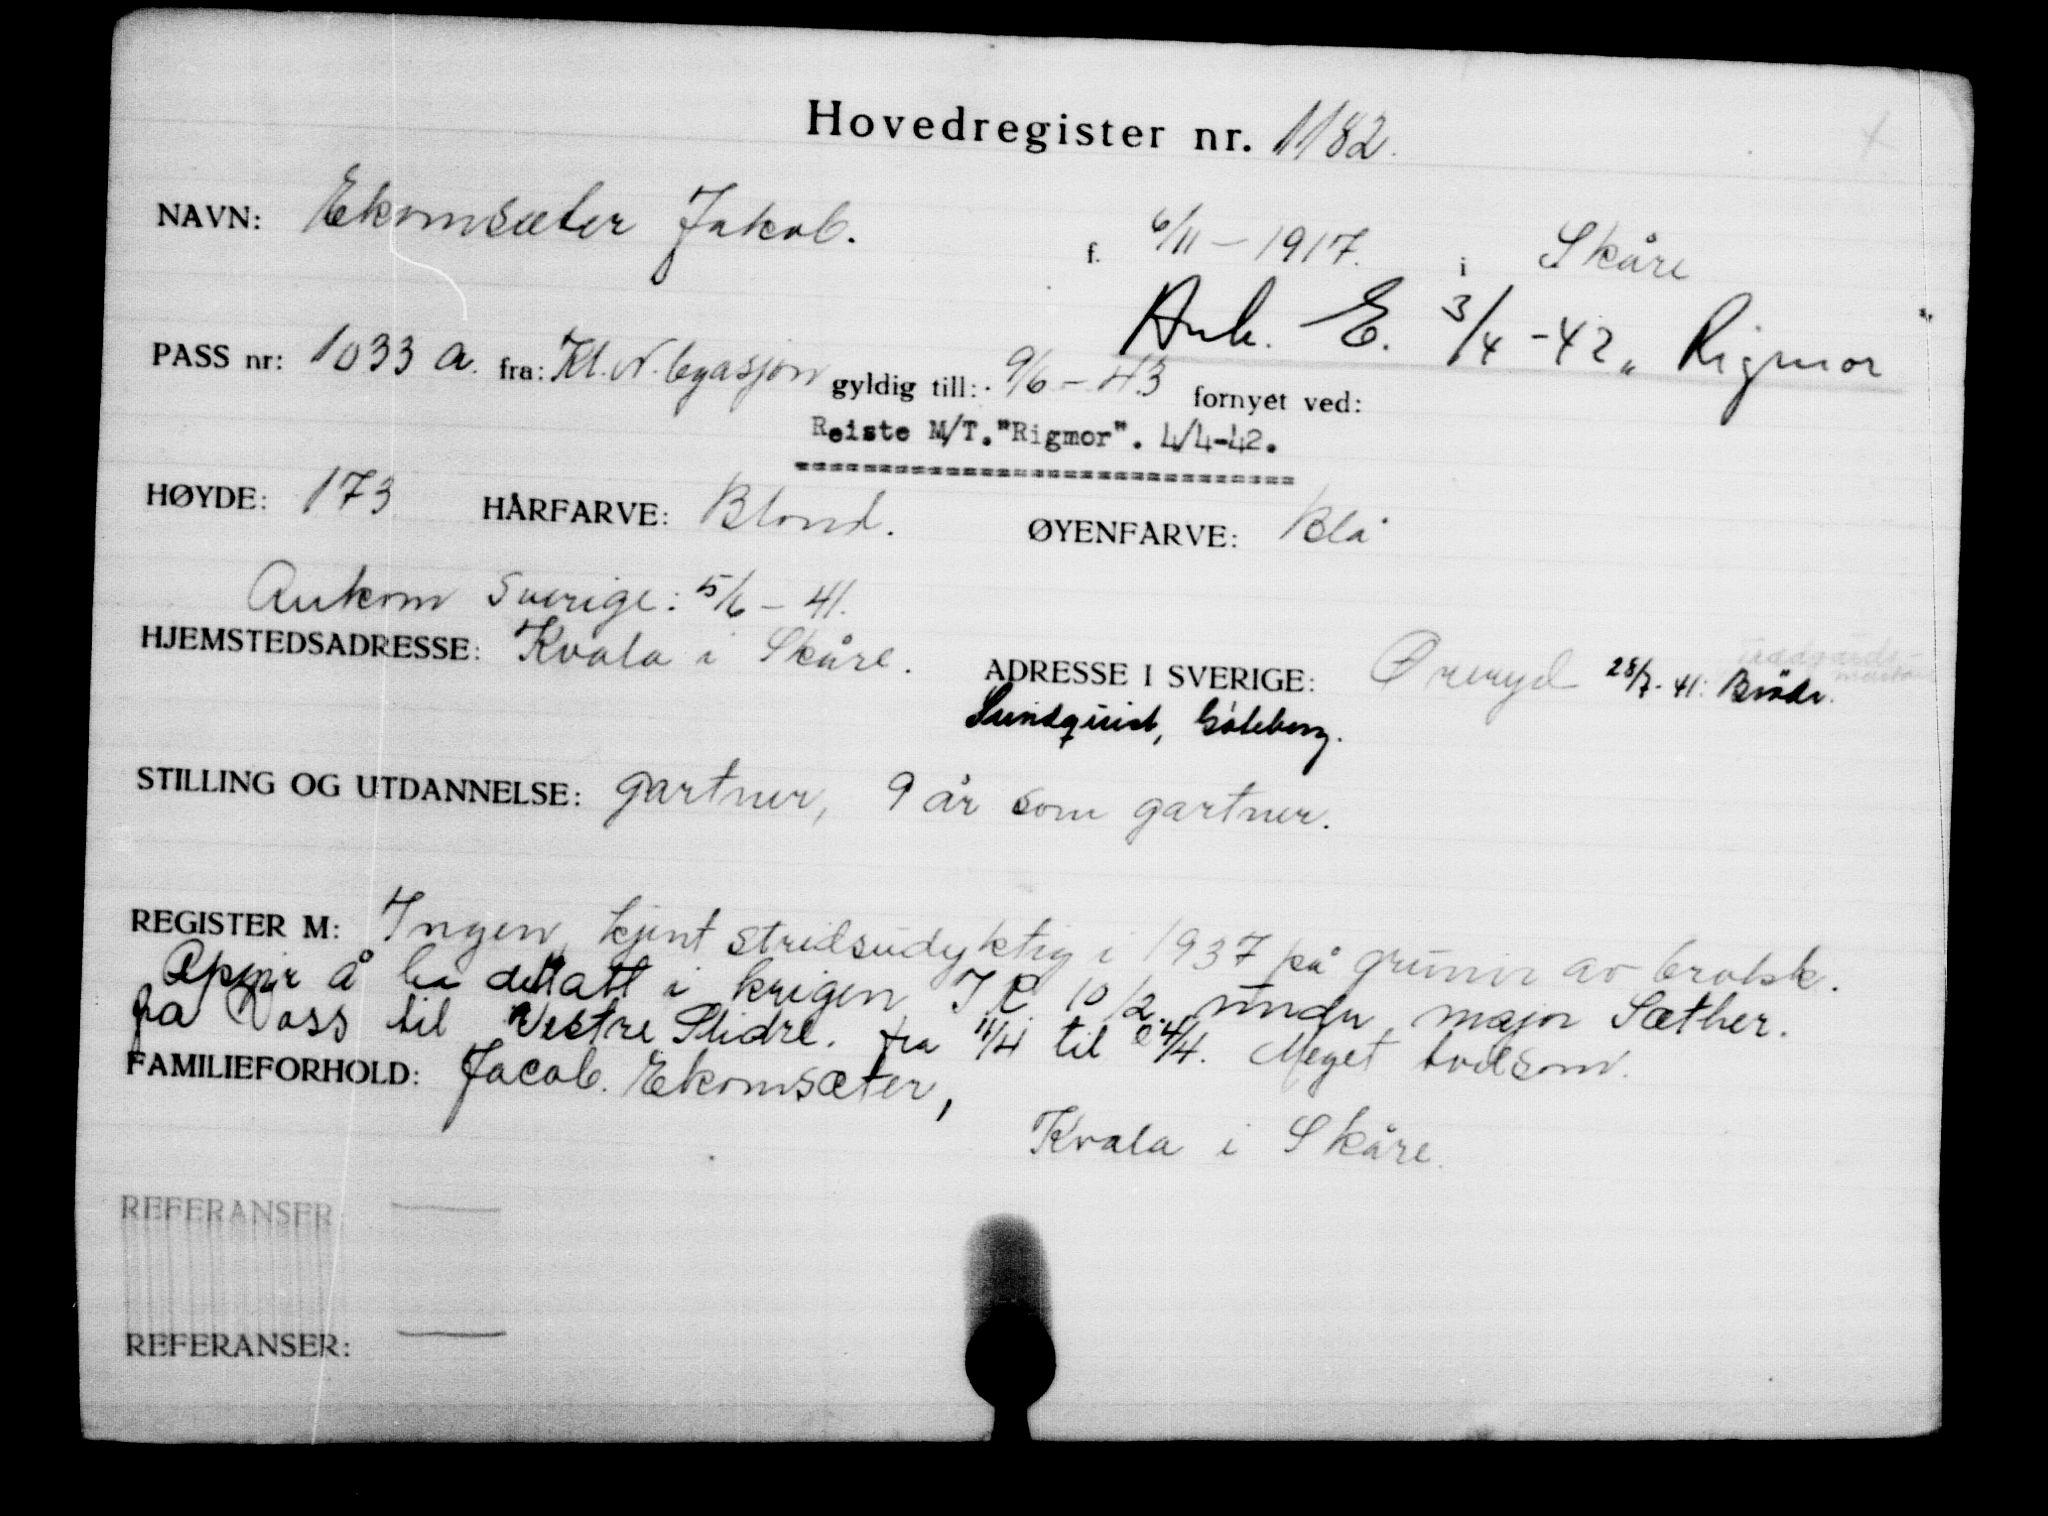 Hovedregister nr. 1182.
NAVN: Ekomsæter Jakob. f. 6/11 - 1917. i Skåre
Ank. E. 3/4 - 42 „ Rigmor "
PASS nr: 1033 a. fra: Kl. N. legasjon gyldig till: 9/6 - 43 fornyet ved:
Reiste M/T. "Rigmor". 4/4-42.
HØYDE: 173 HÅRFARVE: Blond. ØYENFARVE: Blå
Ankom Sverige: 5/6 - 41.
HJEMSTEDSADRESSE: Kvala i Skåre. ADRESSE I SVERIGE: Øreryd 28/7 - 41: Brödr.
Sundquist, Göteborg.
STILLING OG UTDANNELSE: gartner, 9 år som gartner.
REGISTER M: Ingen, kjent stridsudyktig i 1937 på grunn av brokk.
å ha deltatt i krigen I R 10/2. under major Sæther.
på Voss til Vestre Slidre. fra 11/4 til 24/4. Meget tvilsom.
FAMILIEFORHOLD: Jacob. Ekomsæter,
Kvala i Skåre.
REFERANSER: —
REFERANSER: —